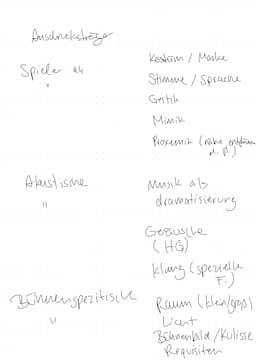 Ausdrucksträger
Kostüm / Maske
Spieler als
Stimme / Sprache
"
Gestik
Mimik
Proxemik (nähe, entfern.
Akustische
Musik als
"
dramatisierung
Geräusche
(HG)
Klang (spezielle
F.)
Bühnenspezifische
Raum (klein/groß)
"
Licht
Bühnenbild / Kulisse
Requisiten